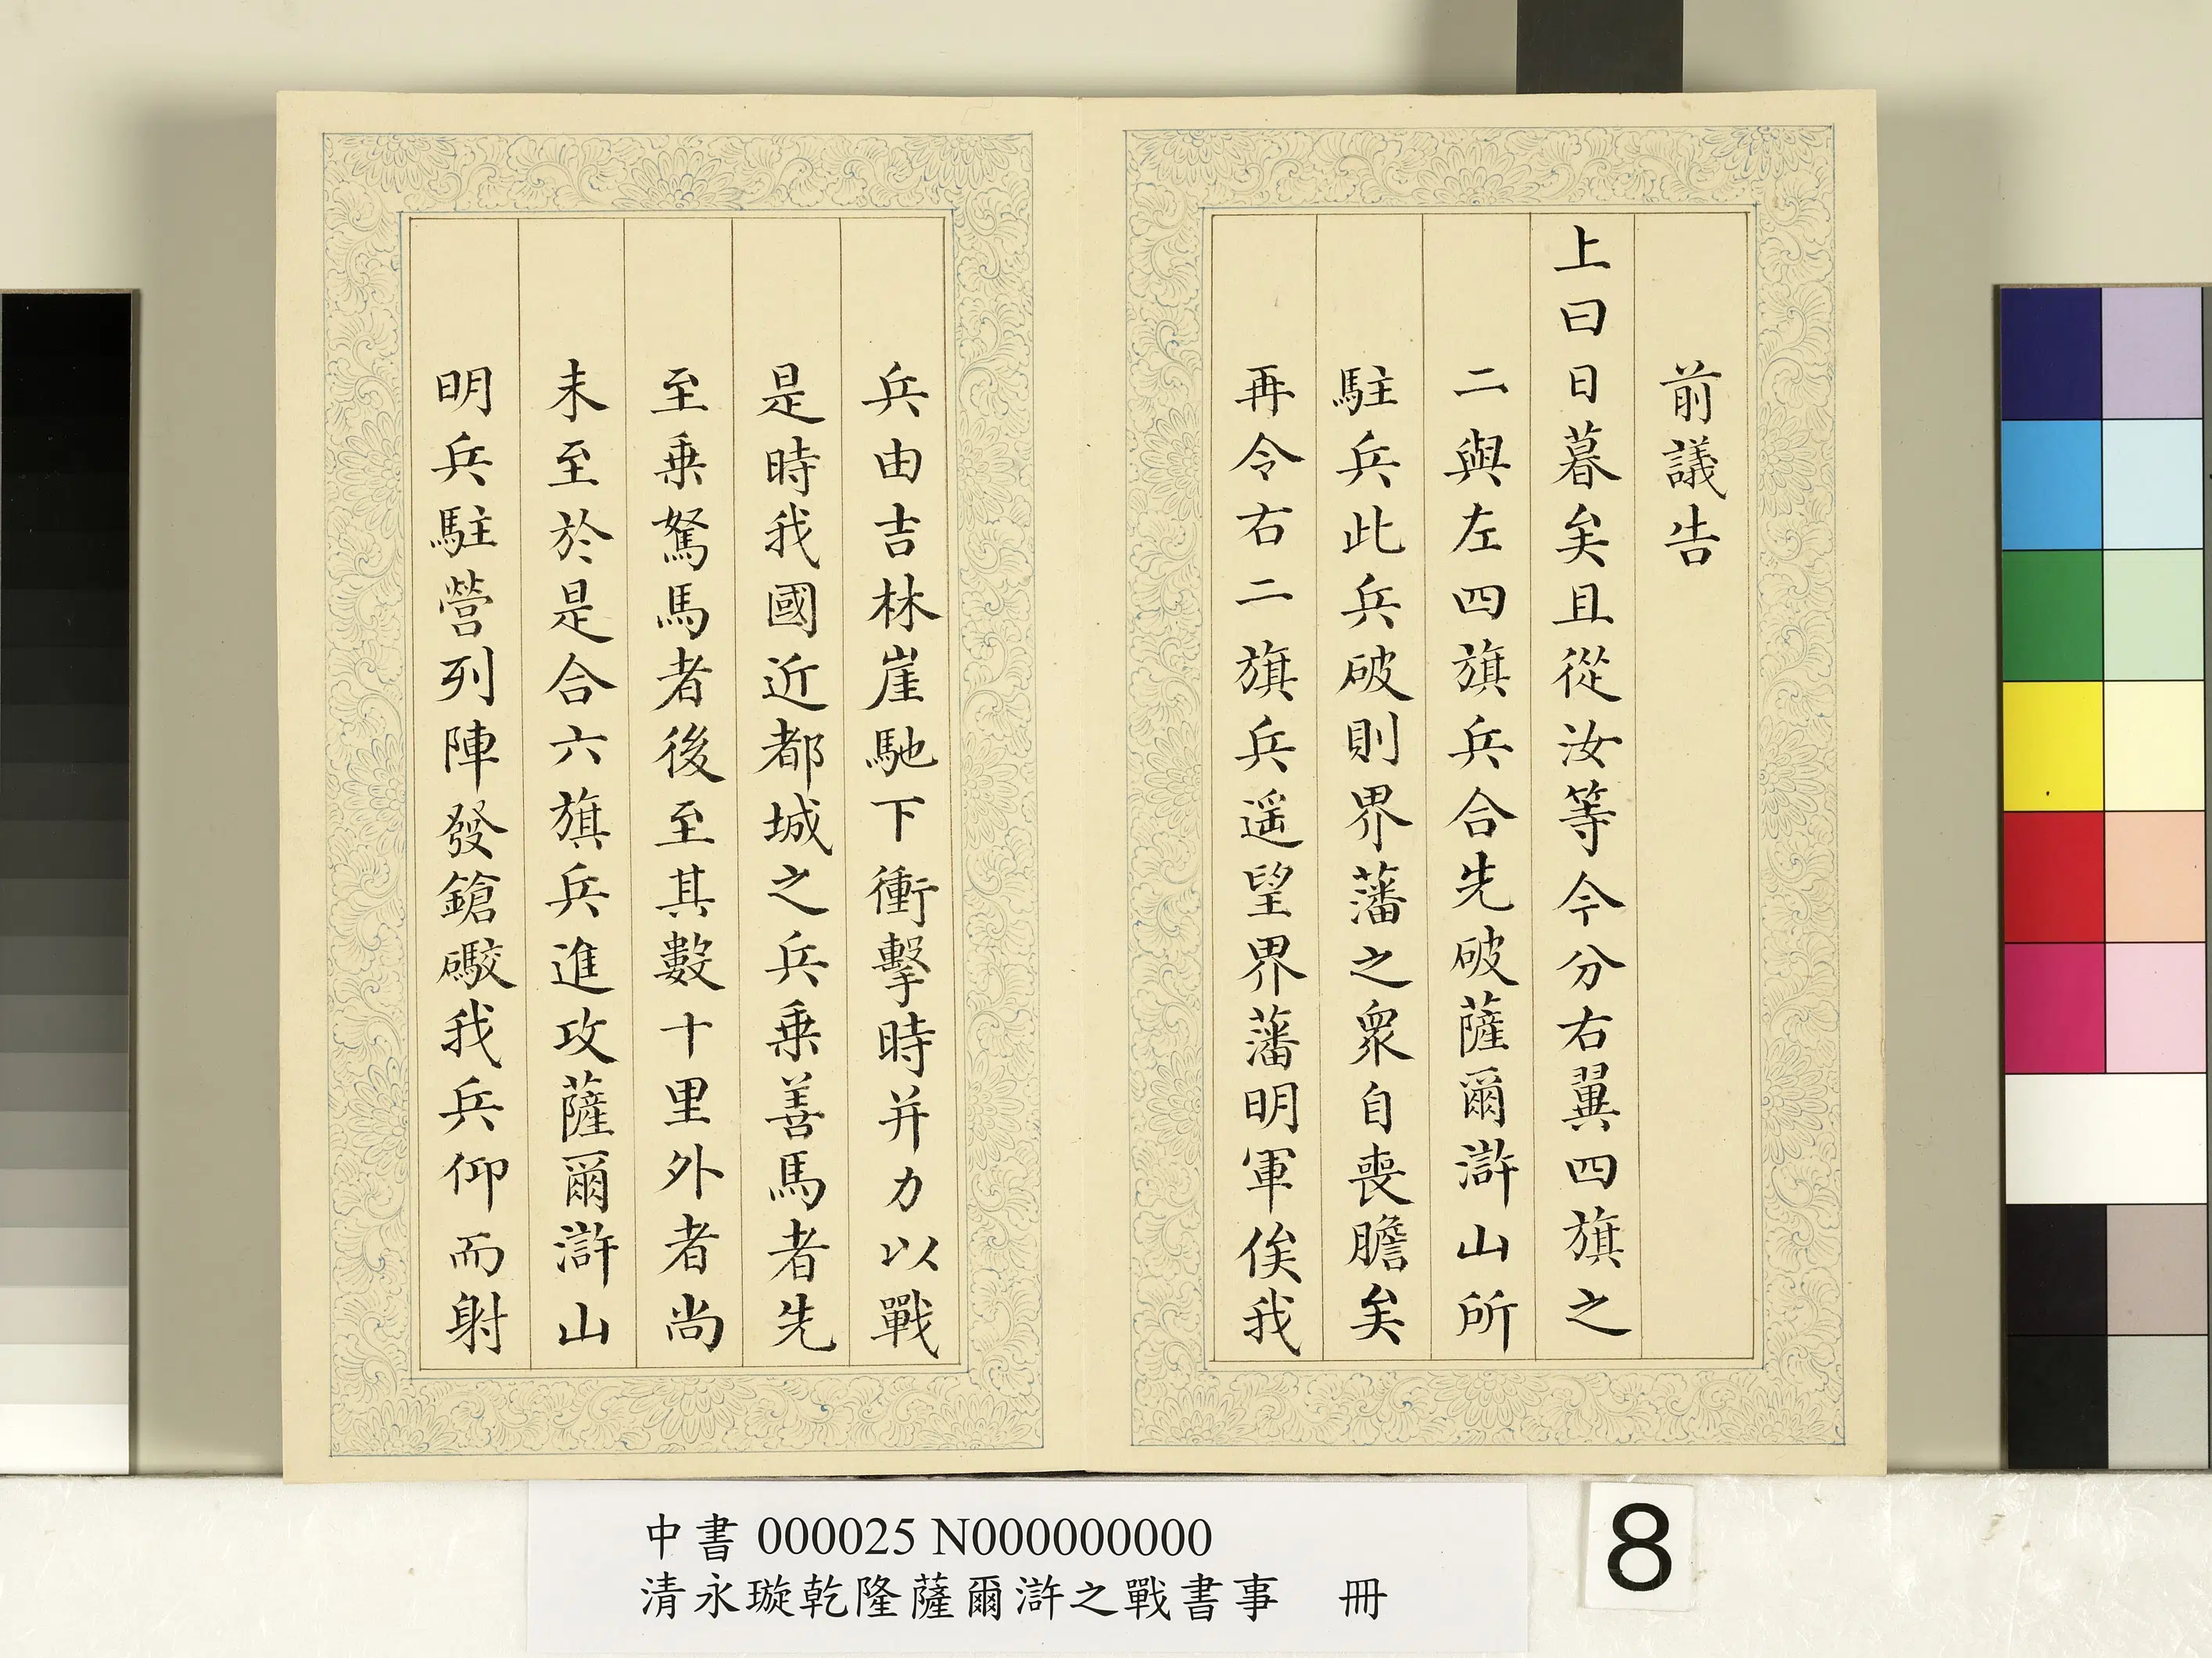 前議告
上曰日暮矣且從汝等今分右翼四旗之
二與左四旗兵合先破薩爾滸山所
駐兵此兵破則界藩之眾自喪膽矣
再令右二旗兵遥望界藩明軍俟我
兵由吉林崖馳下衝擊時并力以戰
是時我國近都城之兵乗善馬者先
至乗駑馬者後至其數十里外者尚
未至於是合六旗兵進攻薩爾滸山
明兵駐營列陣發鎗礮我兵仰而射
中書 000025 N000000000
清永璇乾隆薩爾滸之戰書事 冊
8